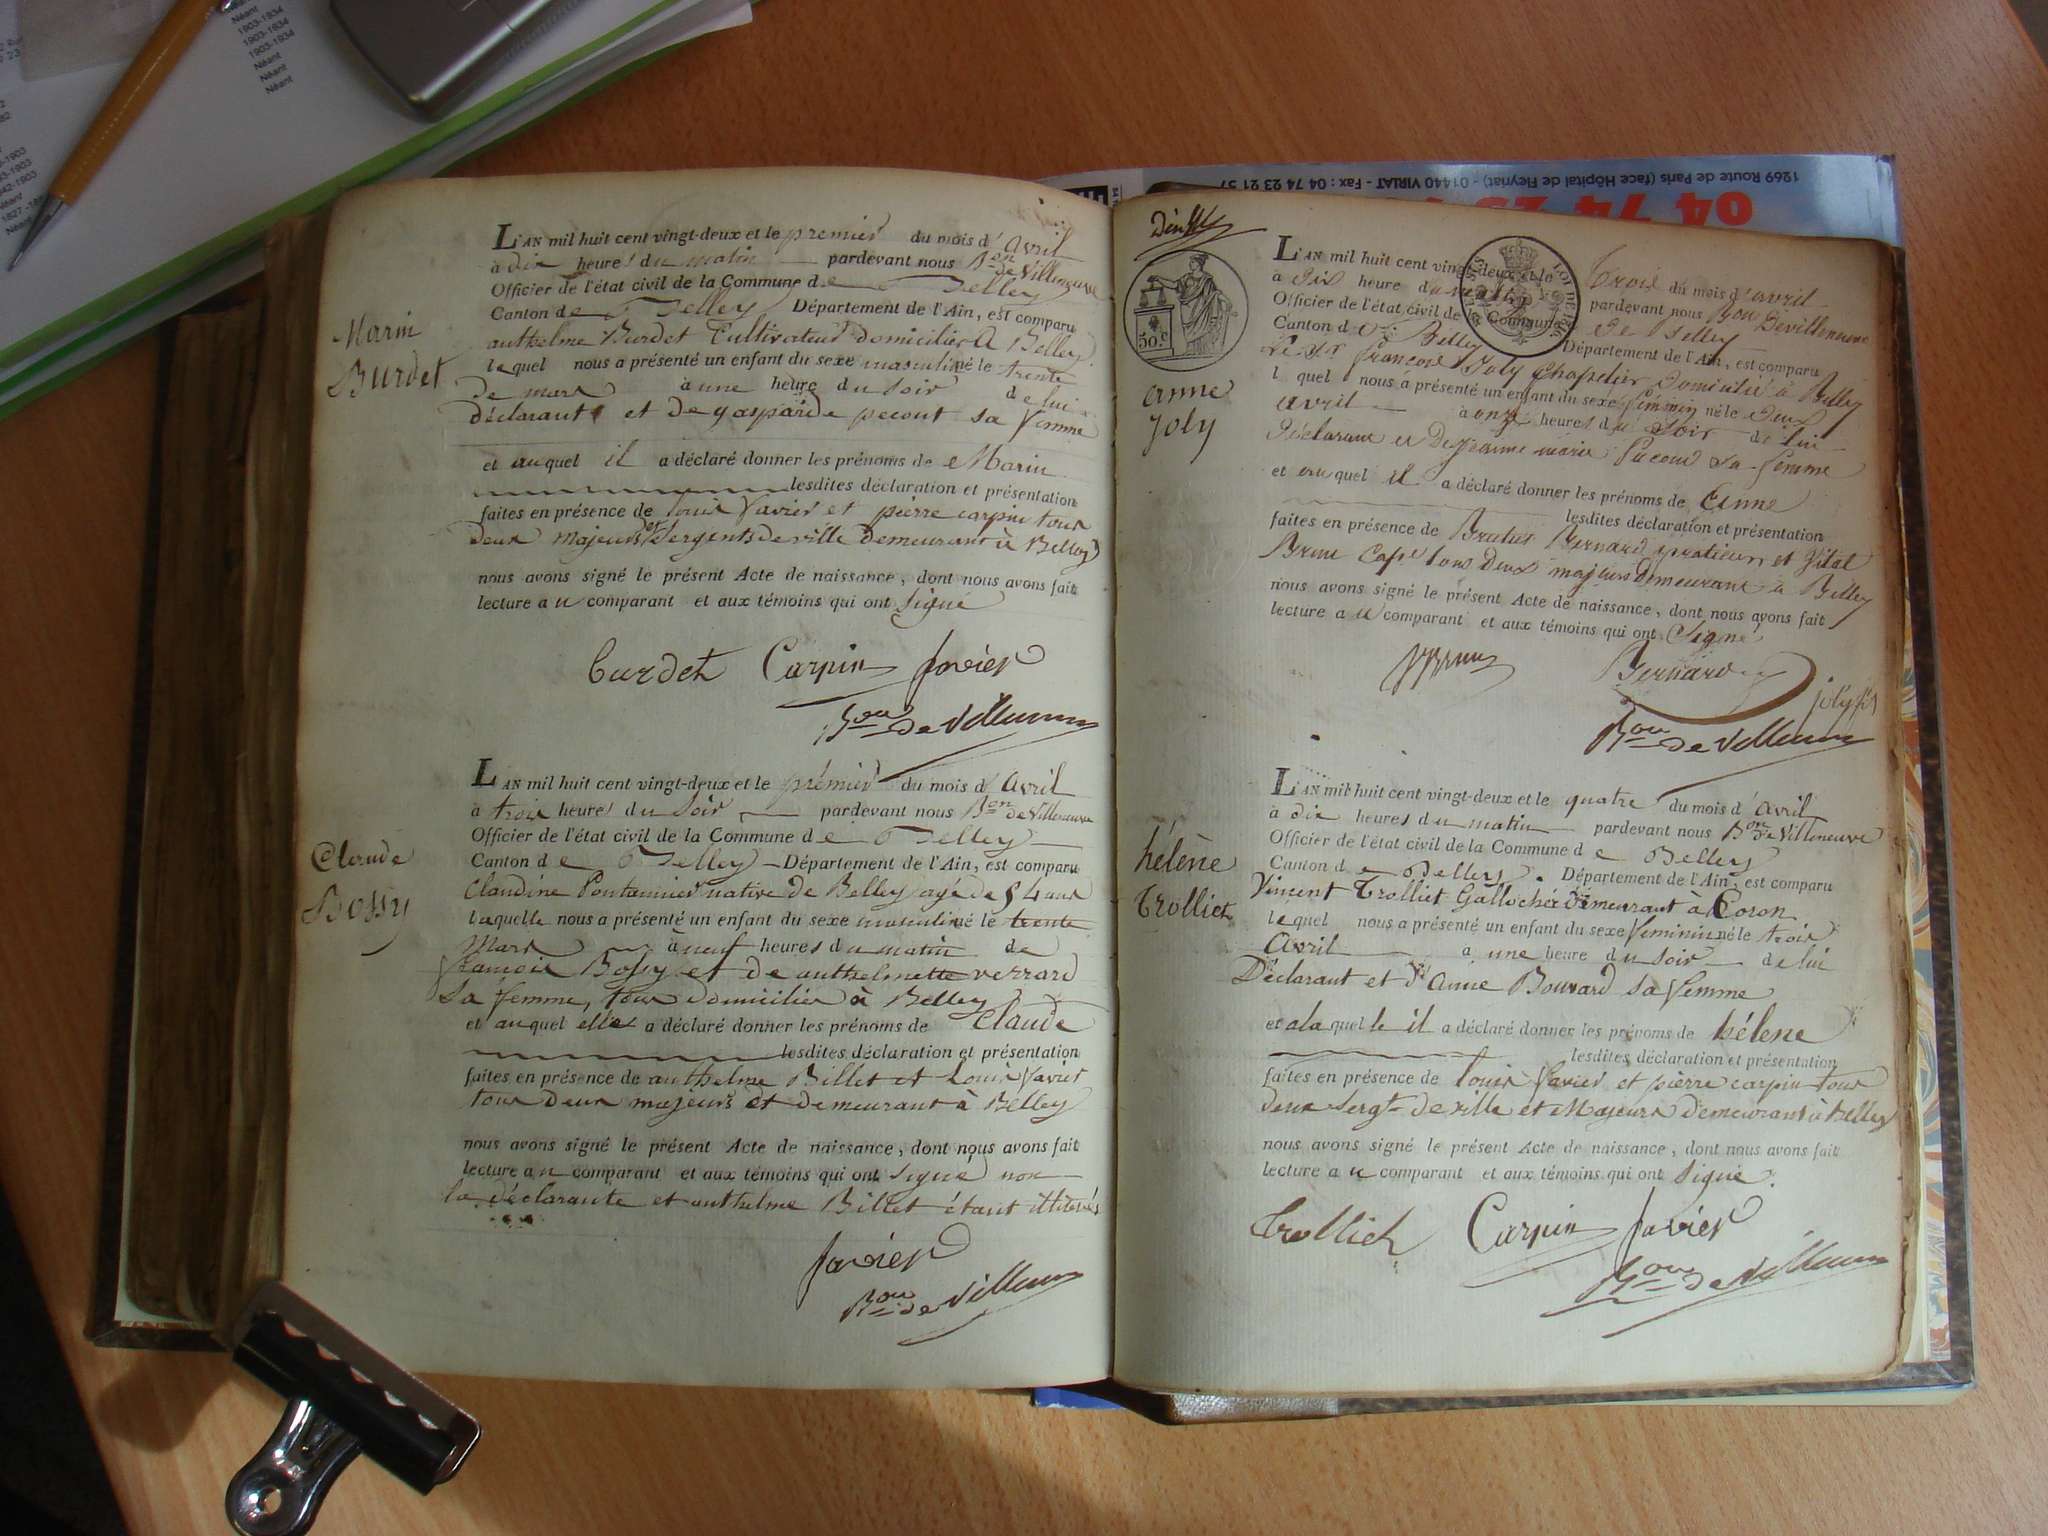 Néant
1903-1934
1903-1934
1903-1934
Néant
Néant
Néant
1269 Route de Paris (face Hôpital de Fleyriat) - 01440 VIRIAT - Fax : 04 74 23 21 57
04 74 23
Marin
Burdet
L'AN mil huit cent vingt-deux et le premier du mois d'avril
à dix heures du matin pardevant nous Bon de Villeneuve
Officier de l'état civil de la Commune de Belley
Canton de Belley Département de l'Ain, est comparu
authelme Burdet Cultivateur domicilié à Belley
lequel nous a présenté un enfant du sexe masculin né le trente
de mars à une heure du soir de lui
déclarant et de gasparde pecout sa femme
et auquel il a déclaré donner les prénoms de Marin
lesdites déclaration et présentation
faites en présence de louis Favier et pierre carpin tous
deux majeurs et sergents de ville demeurant à Belley
nous avons signé le présent Acte de naissance, dont nous avons fait
lecture au comparant et aux témoins qui ont signé
Burdet Carpin favier
Bon de Villeneuve
Claude
Bossy
L'AN mil huit cent vingt-deux et le premier du mois d'avril
à trois heures du soir pardevant nous Bon de Villeneuve
Officier de l'état civil de la Commune de Belley
Canton de Belley Département de l'Ain, est comparu
Claudine Pontannier native de Belley agé de 54 ans
laquelle nous a présenté un enfant du sexe masculin né le trente
Mars à neuf heures du matin de
françois Bossy et de authelmette verrard
sa femme, tous domicilié à Belley
et auquel elle a déclaré donner les prénoms de Claude
lesdites déclaration et présentation
faites en présence de authelme Billet et Louis Favier
tous deux majeurs et demeurant à Belley
nous avons signé le présent Acte de naissance, dont nous avons fait
lecture au comparant et aux témoins qui ont signé non
la déclarante et authelme Billet étant illiterés
favier
Bon de Villeneuve
50.c
LOI DE
anne
Joly
L'AN mil huit cent vingt-deux et le trois du mois d'avril
à dix heure du matin pardevant nous Bon Devilleneuve
Officier de l'état civil de la Commune de Belley
Canton de Belley Département de l'Ain, est comparu
le Sr françois Joly Chapelier Domicilié à Belley
l quel nous a présenté un enfant du sexe féminin né le deux
avril à onze heures du soir de lui
déclarant et de jeanne marie sa femme
et auquel il a déclaré donner les prénoms de Anne
lesdites déclaration et présentation
faites en présence de Brutus Bernard praticien et Vital
Brun tous deux majeurs demeurant à Belley
nous avons signé le présent Acte de naissance, dont nous avons fait
lecture au comparant et aux témoins qui ont Signé
Bernard
joly
Bon de Villeneuve
hélène
Trolliet
L'AN mil huit cent vingt-deux et le quatre du mois d'avril
à dix heures du matin pardevant nous Bon de Villeneuve
Officier de l'état civil de la Commune de Belley
Canton de Belley Département de l'Ain, est comparu
Vincent Trolliet Gallochée demeurant à Coron
lequel nous a présenté un enfant du sexe féminin né le trois
avril à une heure du soir de lui
Déclarant et d'anne Bouvard sa femme
et alaquelle il a déclaré donner les prénoms de hélene
lesdites déclaration et présentation
faites en présence de louis favier et pierre carpin tous
deux sergt de ville et Majeurs demeurant à Belley
nous avons signé le présent Acte de naissance, dont nous avons fait
lecture au comparant et aux témoins qui ont signé.
Trolliet Carpin favier
Bon de Villeneuve